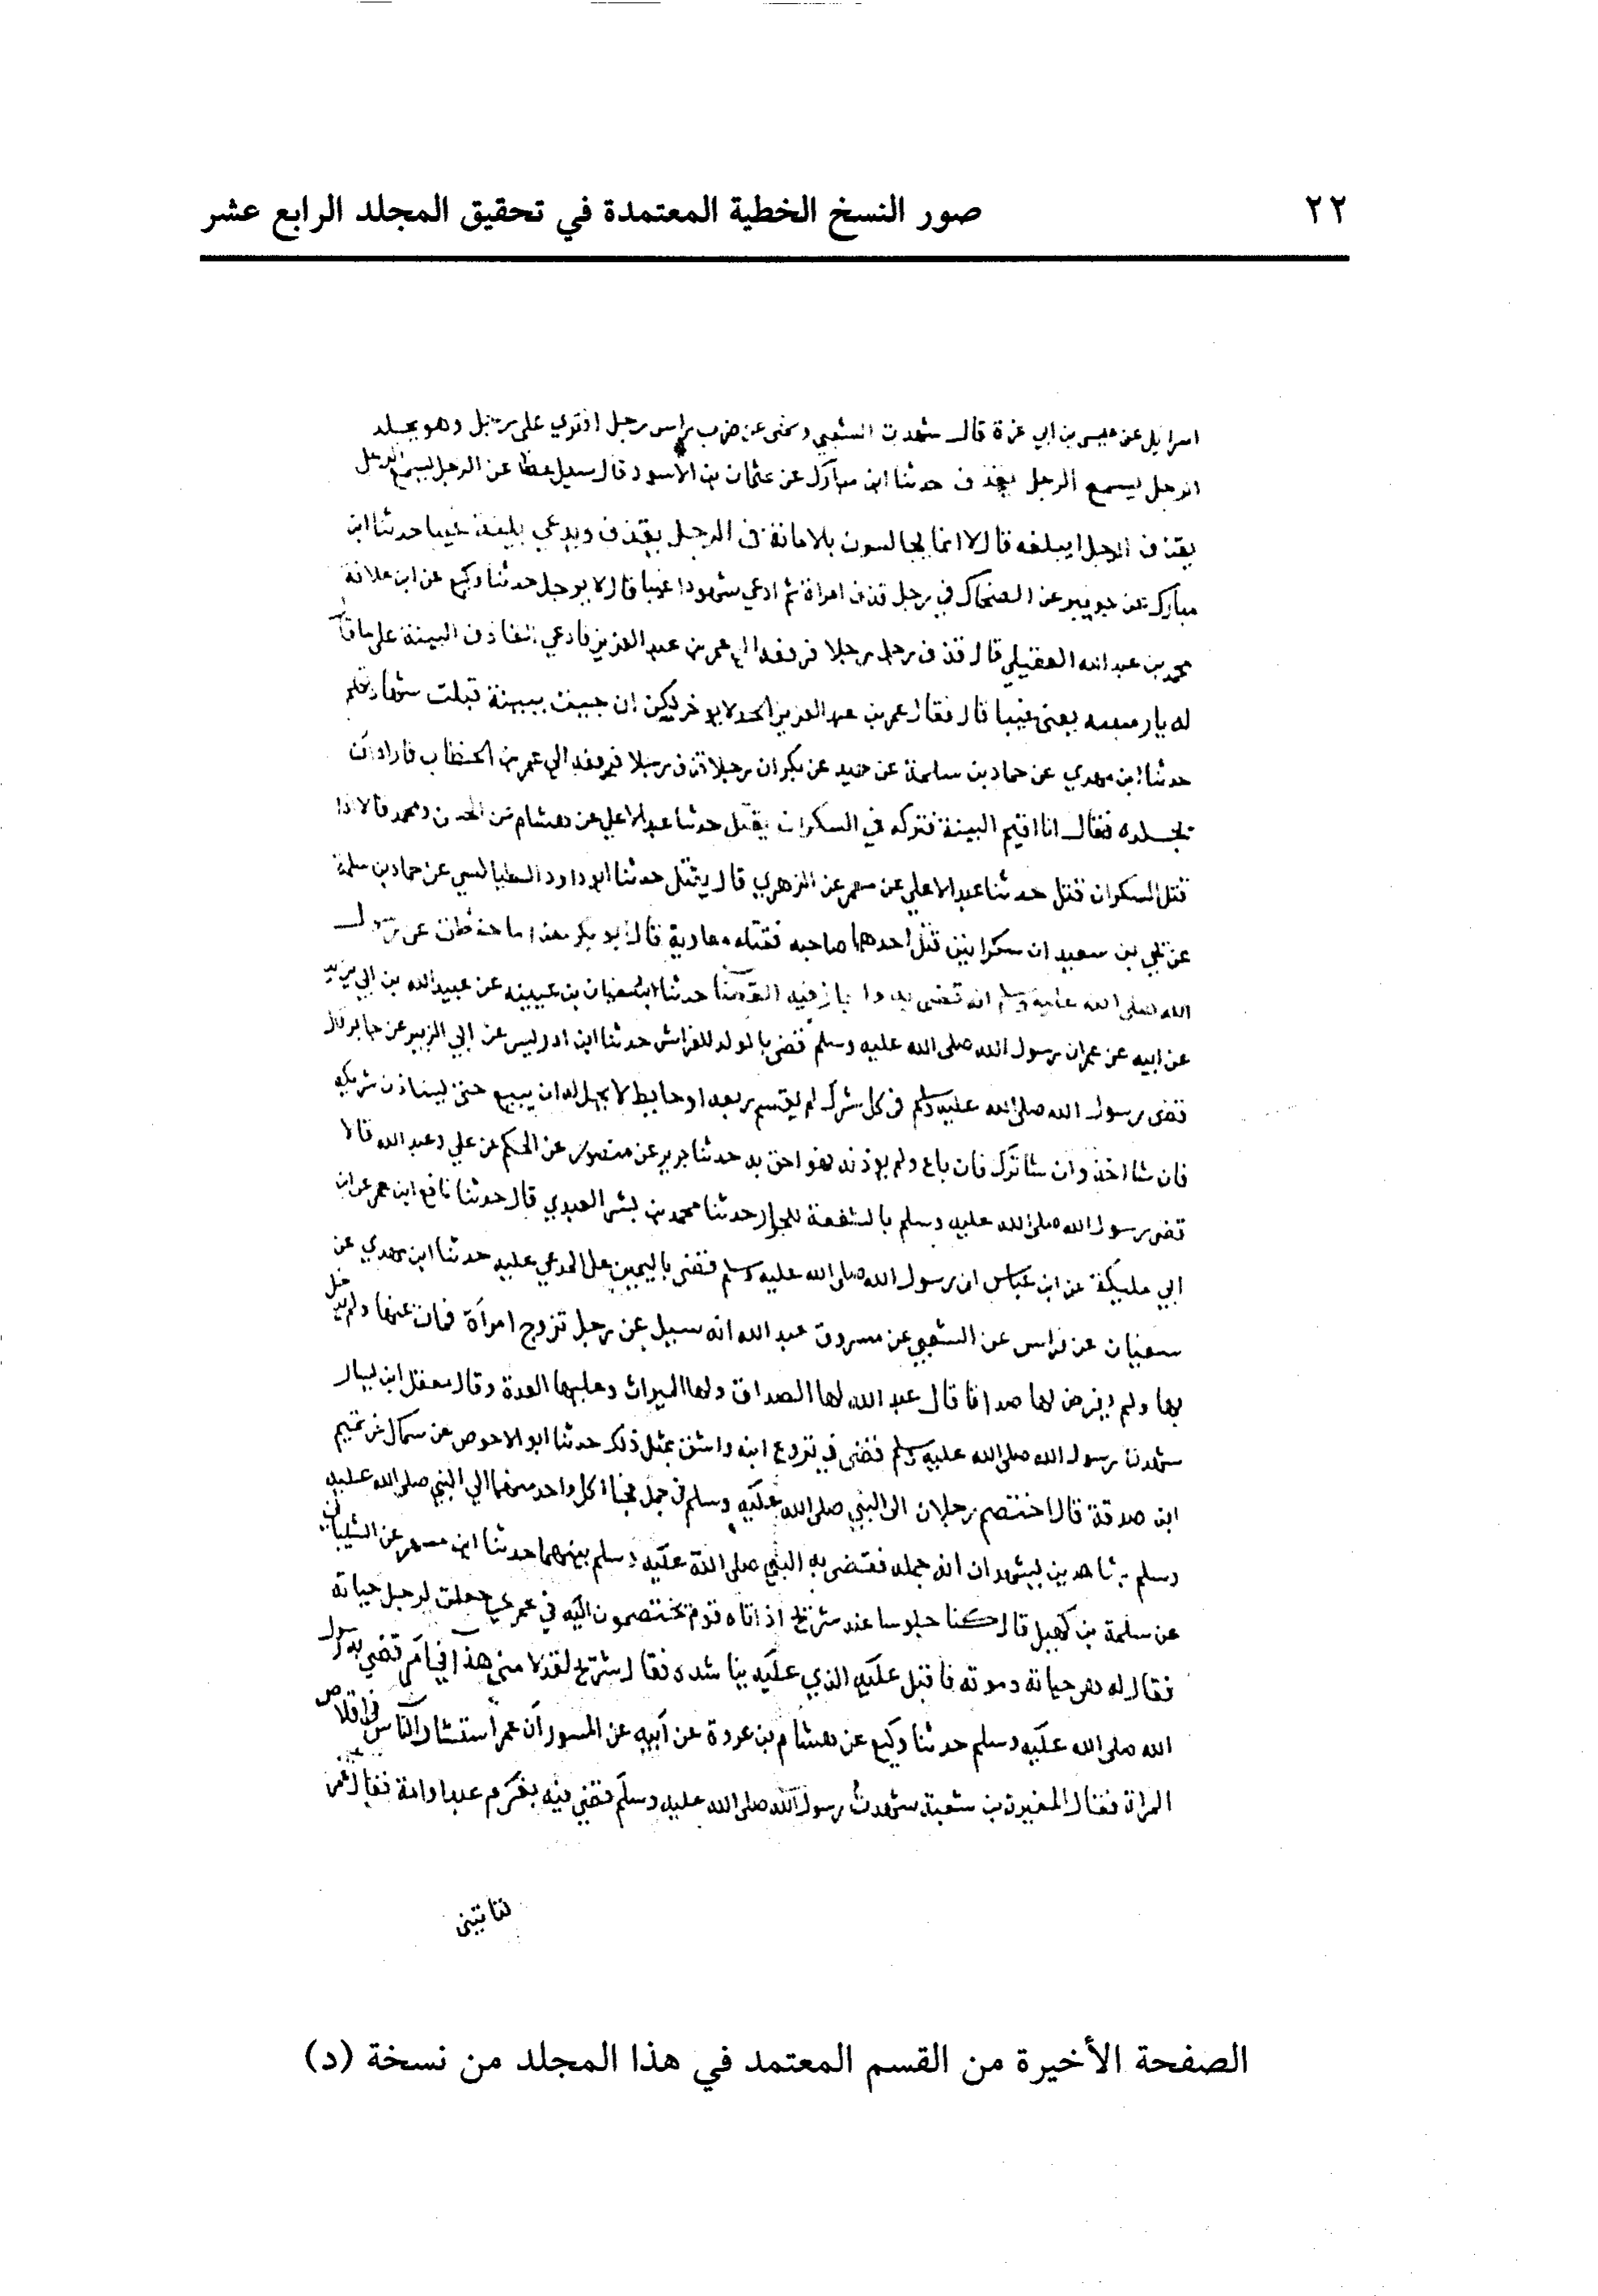 ٢٢ صور النسخ الخطية المعتمدة في تحقيق المجلد الرابع عشر
اسرايل عن عيسى بن ابي عزة قال شهدت الشعبي و عن ضرب راس رجل افتري على رجل وهو يجلد
الرجل يسمع الرجل يقذف حدثنا ابن مبارك عن عثمان بن الاسود قال سيل عطا عن الرجل ليسمع الرجل
يقذف الرجل ايبلغه قال لا انما يجالسون بالامانة في الرجل يقذف ويدعي بلغه غيبا حدثنا ابن
مبارك عن جويبر عن الضحاك في رجل قذف امراة ثم ادعي شهودا غيبا قال لا يوجل حدثنا وكيع عن ابن علاثة
محمد بن عبدالله العقيلي قال قذف رجل رجلا فرفعه الي عمر بن عبد العزيز فادعي القاذف البينة على ما قال
له بارمينيه يعني غيبا قال فقال عمر بن عبد العزيز الحد لا يوخر لكن ان جيت ببينة قبلت شهادتهم
حدثنا ابن مهدي عن حماد بن سلمة عن حميد عن بكر ان رجلا قذف رجلا فرفعه الي عمر بن الخطاب فاراد ان
يجلده فقال انا اقيم البينة فتركه في السكران يقتل حدثنا عبد الاعلي عن هشام عن الحسن ومحمد قالا اذا
قتل السكران قتل حدثنا عبد الاعلي عن معمر عن الزهري قال يقتل حدثنا ابو داود الطيالسي عن حماد بن سلمة
عن يحي بن سعيد ان سكرانين قتل احدهما صاحبه فقتله معاوية قال ابو بكر هذا ما حفظت عن رسول
الله صلى الله عليه وسلم انه قضى به حدثنا سفيان بن عيينه عن عبيد الله بن ابي يزيد
عن ابيه عن عمر ان رسول الله صلى الله عليه وسلم قضى بالولد للفراش حدثنا ابن ادريس عن ابي الزبير عن جابر قال
قضى رسول الله صلى الله عليه وسلم في كل شرك لم يقسم ربعه او حايط لا يحل له ان يبيع حتى يستاذن شريكه
فان شا اخذ وان شا ترك فان باع ولم يوذنه فهو احق به حدثنا جرير عن منصور عن الحكم عن علي وعبد الله قالا
قضى رسول الله صلى الله عليه وسلم بالشفعة للجوار حدثنا محمد بن بشر العبدي قال حدثنا نافع ابن عمر عن ابن
ابي مليكة عن ابن عباس ان رسول الله صلى الله عليه وسلم قضى باليمين على المدعي عليه حدثنا ابن مهدي عن
سفيان عن فراس عن الشعبي عن مسروق عبد الله انه سيل عن رجل تزوج امرأة فمات عنها ولم يدخل
بها ولم يفرض لها صداقا قال عبد الله لها الصداق ولها الميراث وعليها العدة وقال معقل ابن يسار
شهدت رسول الله صلى الله عليه وسلم قضى في تزوع ابنه واشق بمثل ذلك حدثنا ابو الاحوص عن سماك عن تميم
ابن صدقة قال اختصم رجلان الى النبي صلى الله عليه وسلم في جمل فجا كل واحد منهما الي النبي صلى الله عليه
وسلم بشاهدين يشهدان انه جمله فقضى به النبي صلى الله عليه وسلم بينهما حدثنا ابن مسهر عن الشيباني
عن سلمة بن كهيل قال كنا جلوسا عند شريح اذ اتاه قوم يختصمون اليه في عمري جعلت لرجل حياته
فقال له هي حياته وموته فاقبل عليه الذي عليه يناشده فقال شريح لقد لامني هذا في امر قضي به رسول
الله صلى الله عليه وسلم حدثنا وكيع عن هشام بن عروة عن أبيه عن المسور أن عمر استشار الناس في املاص
المراة فقال المغيرة بن شعبة شهدت رسول الله صلى الله عليه وسلم قضى فيه بغرة عبدا وامة فقال عمر
الصفحة الأخيرة من القسم المعتمد في هذا المجلد من نسخة (د)